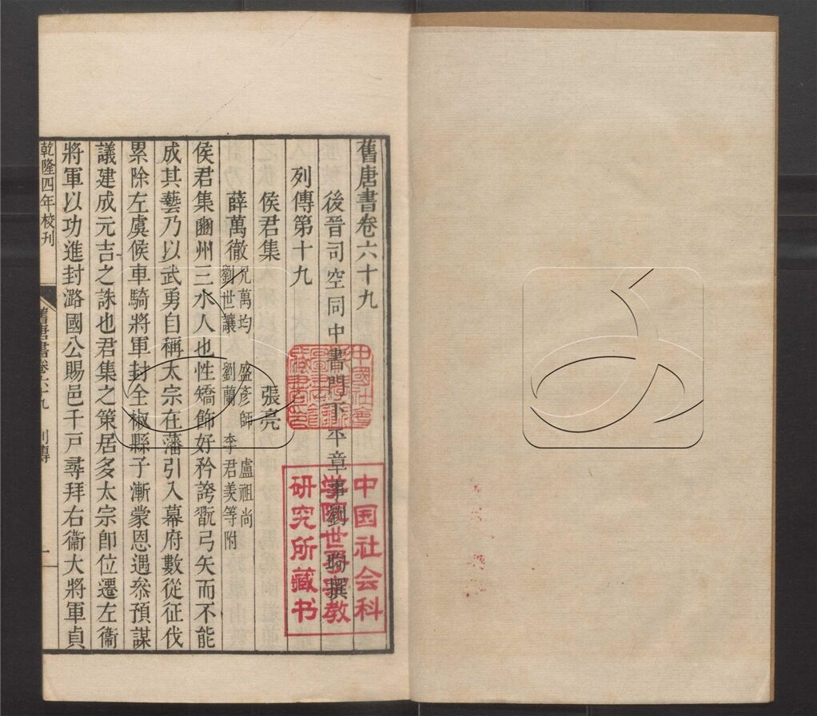 舊唐書卷六十九
後晉司空同中書門下平章事劉昫撰
列傳第十九
侯君集 張亮
薛萬徹兄萬均 盛彥師 盧祖尚
劉世讓 劉蘭 李君羨等附
侯君集豳州三水人也性矯飾好矜誇翫弓矢而不能
成其藝乃以武勇自稱太宗在藩引入幕府數從征伐
累除左虞候車騎將軍封全椒縣子漸蒙恩遇叅預謀
議建成元吉之誅也君集之策居多太宗卽位遷左衞
將軍以功進封潞國公賜邑千戸尋拜右衞大將軍貞
乾隆四年校刊
舊唐書卷六十九 列傳
一
中国社会科
学院世界宗教
研究所藏书